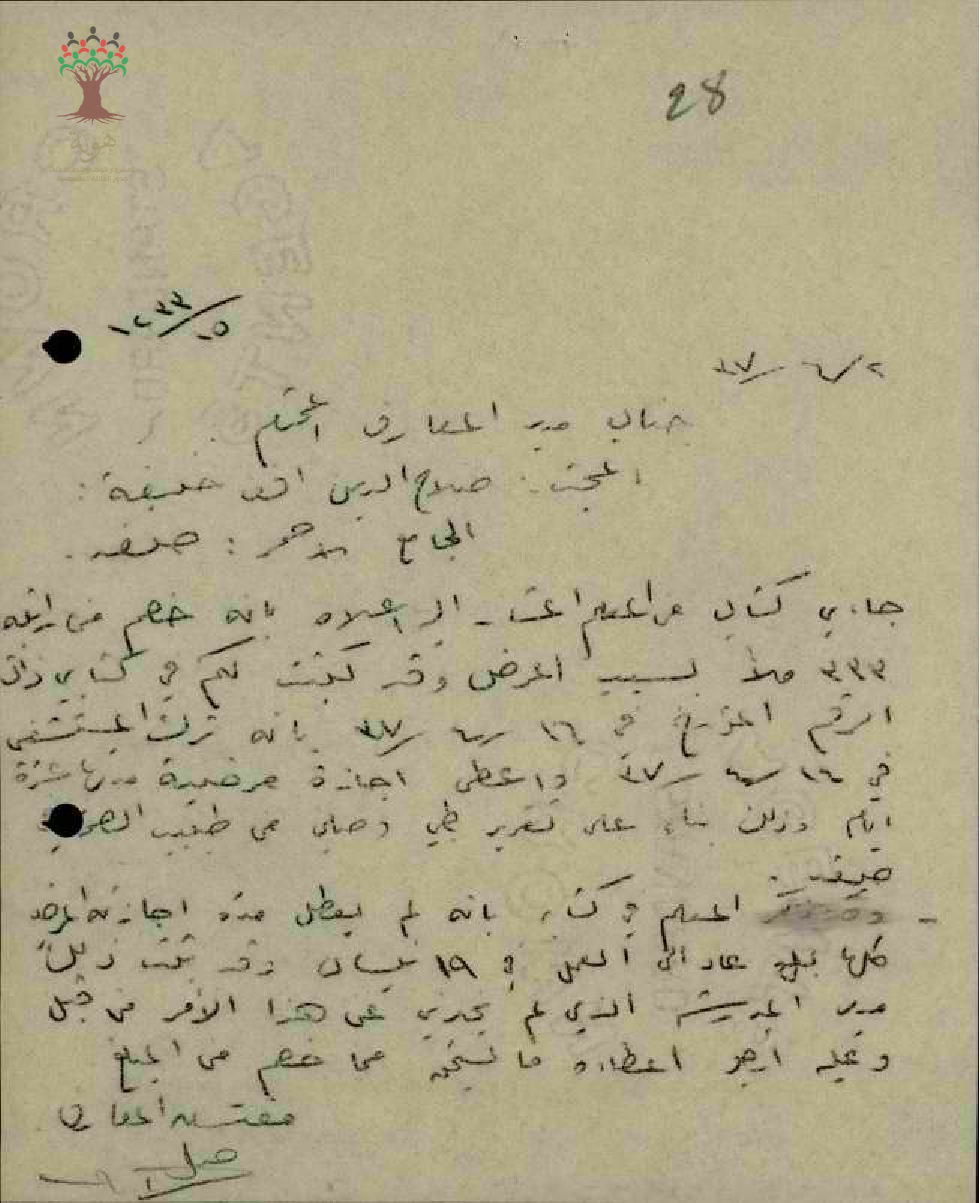 28
١٢٣٣/١٥
٢/٦/٣٧
جناب مدير المعارف المحترم
المبحث: صلاح الدين افندي خليفة:
الجامع الاحمر: صفد.
جاءني كتاب من المعلم المشار اليه اعلاه بانه خصم من راتبه
٣٣٣ ملاً بسبب المرض وقد كتبت لكم في كتابي ذات
الرقم المؤرخ في ١٦/٤/٣٧ بانه ترك المستشفى
في ١٦/٤/٣٧ واعطي اجازة مرضية مدتها عشرة
ايام وذلك بناء على تقرير طبي وصلني من طبيب الصحة في
صفد.
المعلم في كتابه بانه لم يعطل مدة اجازته المرضية
كلها بل عاد الى العمل في ١٩ نيسان وقد ثبت ذلك
مدير المدرسة الذي لم يخبرني عن هذا الأمر من قبل
وعليه ارجو اعطاءه ما يستحق مما خصم من المبلغ
مفتش المعارف